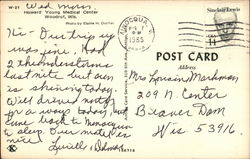 W-21
Wed morn.
Howard Young Medical Center
Woodruf, Wis.
Photo by Claire H. Dunfar
Hi - Our trip up
was fine. Had
2 thunderstorms
last nite but sun
is shining today
Will drive north
or a ways today,
come back to
to sleep. Our motel is
nice.
MINOCQUA, WI
PM
1985
Sinclair Lewis
14
POST CARD
Address
Mrs Lorraine Markman
209 N. Center
Beaver Dam
Wis 53916